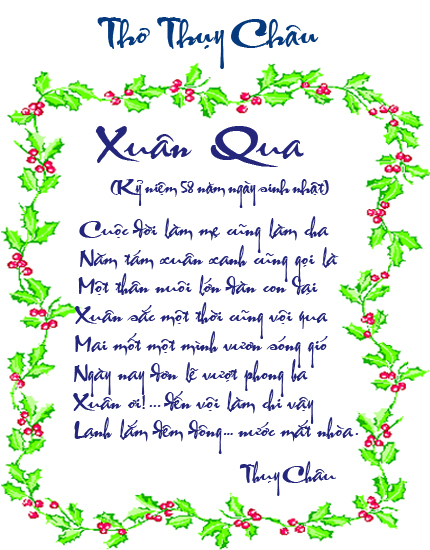 Thơ Thụy Châu
Xuân Qua
(Kỷ niệm 58 năm ngày sinh nhật)
Cuộc đời làm mẹ cũng làm cha
Năm tám xuân xanh cũng gọi là
Một thân nuôi lớn đàn con dại
Xuân sắc một thời cũng vội qua
Mai mốt một mình vươn sóng gió
Ngày nay đơn lẻ vượt phong ba
Xuân ơi!... đến vội làm chi vậy
Lạnh lắm đêm đông... nước mắt nhòa.
Thụy Châu